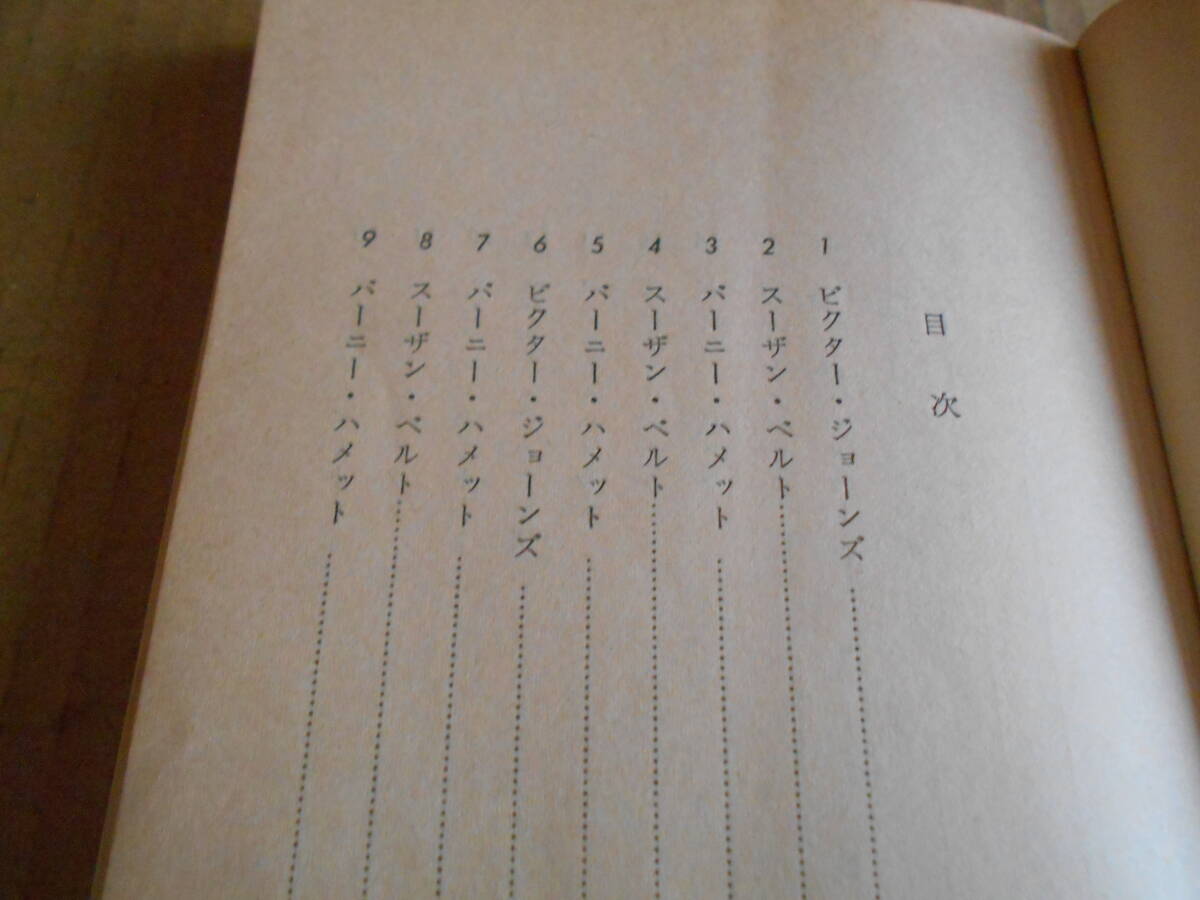 目次
1 ビクター・ジョーンズ
2 スーザン・ベルト
3 バーニー・ハメット
4 スーザン・ベルト
5 バーニー・ハメット
6 ビクター・ジョーンズ
7 バーニー・ハメット
8 スーザン・ベルト
9 バーニー・ハメット